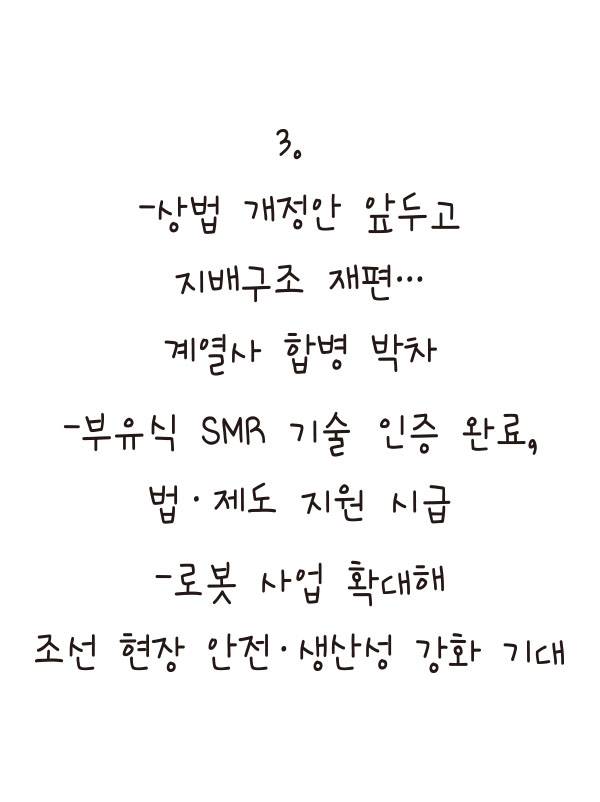 3.
-상법 개정안 앞두고
지배구조 재편…
계열사 합병 박차
-부유식 SMR 기술 인증 완료,
법·제도 지원 시급
-로봇 사업 확대해
조선 현장 안전·생산성 강화 기대